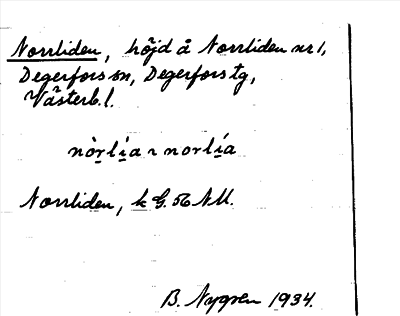 Norrliden, höjd å Norrliden nr 1,
Degerfors sn, Degerfors tg,
Västerb. l.
nòrlia ~ norlía
Norrliden, k G. 56 NU.
B. Nygren 1934.